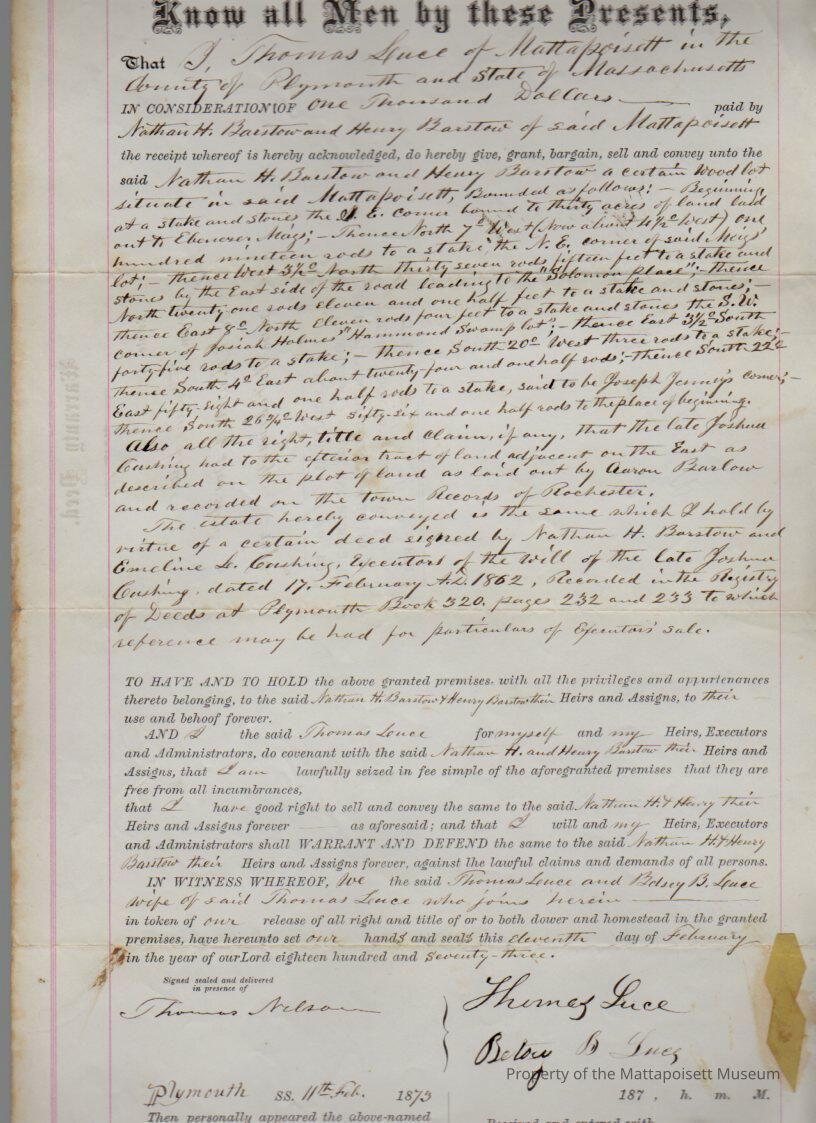 Know all Men by these Presents,
That I, Thomas Luce of Mattapoisett in the
County of Plymouth and State of Massachusetts
IN CONSIDERATION OF One Thousand Dollars paid by
Nathan H. Barstow and Henry Barstow of said Mattapoisett
the receipt whereof is hereby acknowledged, do hereby give, grant, bargain, sell and convey unto the
said Nathan H. Barstow and Henry Barstow a certain Woodlot
situate in said Mattapoisett, Bounded as follows: - Beginning
at a stake and stones the S. E. corner bound to thirty acres of land laid
out to Ebenezer Meigs; - Thence North 7° West (Now about 4½° West) one
hundred nineteen rods to a stake, the N. E. corner of said Meigs'
lot; - thence West 3½° North thirty seven rods fifteen feet to a stake and
stones by the East side of the road leading to the "Solomon Place"; - thence
North twenty-one rods eleven and one half feet to a stake and stones; -
thence East 8° North Eleven rods four feet to a stake and stones the S. W.
corner of Josiah Holmes' "Hammond Swamp lot"; - thence East 3½° South
forty-five rods to a stake; - thence South 20° West three rods to a stake; -
thence South 4° East about twenty four and one half rods; - thence South 22°
East fifty-eight and one half rods to a stake, said to be Joseph Jenney's corner; -
thence South 26¾° West Sixty-six and one half rods to the place of beginning.
Also all the right, title and claim, if any, that the late Joshua
Cushing had to the exterior tract of land adjacent on the East as
described on the plot of land as laid out by Aaron Barlow
and recorded on the town Records of Rochester.
The estate hereby conveyed is the same which I hold by
virtue of a certain deed signed by Nathan H. Barstow and
Emeline D. Cushing, Executors of the Will of the late Joshua
Cushing, dated 17. February A.D. 1862, Recorded in the Registry
of Deeds at Plymouth Book 320. pages 232 and 233 to which
reference may be had for particulars of Executors' sale.
TO HAVE AND TO HOLD the above granted premises, with all the privileges and appurtenances
thereto belonging, to the said Nathan H. Barstow & Henry Barstow their Heirs and Assigns, to their
use and behoof forever.
AND I the said Thomas Luce for myself and my Heirs, Executors
and Administrators, do covenant with the said Nathan H. and Henry Barstow their Heirs and
Assigns, that I am lawfully seized in fee simple of the aforegranted premises that they are
free from all incumbrances,
that I have good right to sell and convey the same to the said Nathan H. & Henry their
Heirs and Assigns forever as aforesaid; and that I will and my Heirs, Executors
and Administrators shall WARRANT AND DEFEND the same to the said Nathan H. & Henry
Barstow their Heirs and Assigns forever, against the lawful claims and demands of all persons.
IN WITNESS WHEREOF, We the said Thomas Luce and Betsey B. Luce
wife of said Thomas Luce who joins herein
in token of our release of all right and title of or to both dower and homestead in the granted
premises, have hereunto set our hands and seals this eleventh day of February
in the year of our Lord eighteen hundred and seventy-three.
Signed sealed and delivered
in presence of
Thomas Nelson
Thomas Luce
Betsy B Luce
Property of the Mattapoisett Museum
Plymouth SS. 11th Feb. 1873
187 , h. m. M.
Then personally appeared the above-named
Received and entered with
Warranty Deed.